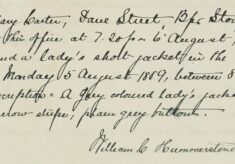 Carter, Dane Street, Bps Stor
this office at 7.20pm 6 August
a lady's short jacket, in the
Monday 5 August 1889, between 8
A grey coloured lady's jacke
stripe, plain grey buttons.
William C Hummerstone